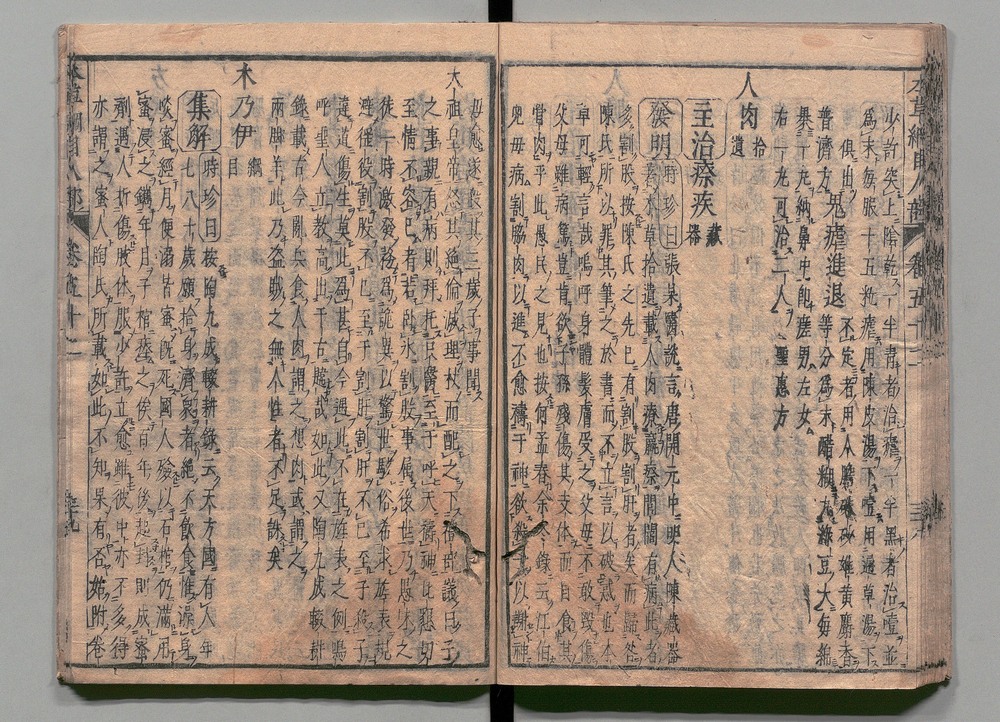 少許突上陰乾一半青者治瘧一半黑者治噎並
爲末每服十五粒瘧用陳皮湯下噎用通草湯下
俱出普濟方 鬼瘧進退不定者用人膽硃砂雄黃麝香
等分爲末醋糊丸綠豆大每綿
裹一丸納鼻中卽瘥男左女
右一丸可治二人 聖惠方
人肉拾遺
主治瘵疾藏器
發明時珍曰張杲醫說言唐開元中明人陳藏器
著本草拾遺載人肉療羸瘵閭閻有病此者
多割股按陳氏之先已有割股割肝者矣而歸咎
陳氏所以罪其筆之於書而不立言以破惑也本
草可輕言哉嗚呼身體髮膚受之父母不敢毀傷
父母雖病篤豈肯欲子孫殘傷其支体而自食其
骨肉乎此愚民之見也按何孟春余冬錄云江伯
兒母病割脇肉以進不愈禱于神欲殺子以謝神
母愈遂殺其三歲子事聞
太祖皇帝怒其絕倫滅理杖而配之下禮部議曰子
之事親有病則拜托良醫至于呼天禱神此懇切
至情不容已者若臥氷割股事属後世乃愚昧之
徒一時激發務爲詭異以驚世駭俗希求旌表規
避徭役割股不已至于割肝割肝不已至于殺子
違道傷生莫此爲甚自今遇此不在旌表之例嗚
呼聖人立教高出千古韙哉如此又陶九成輟耕
錄載古今亂兵食人肉謂之想肉或謂之
兩脚羊此乃盜賊之無人性者不足誅矣
木乃伊綱目
集解時珍曰按陶九成輟耕錄云天方國有人年
七八十歲願捨身濟衆者絕不飲食惟澡身
啖蜜經月便溺皆蜜旣死國人殮以石棺仍滿用
蜜浸之鐫年月于棺瘞之俟百年後起封則成蜜
劑遇人折傷肢体服少許立愈雖彼中亦不多得
亦謂之蜜人陶氏所載如此不知果有否姑附卷